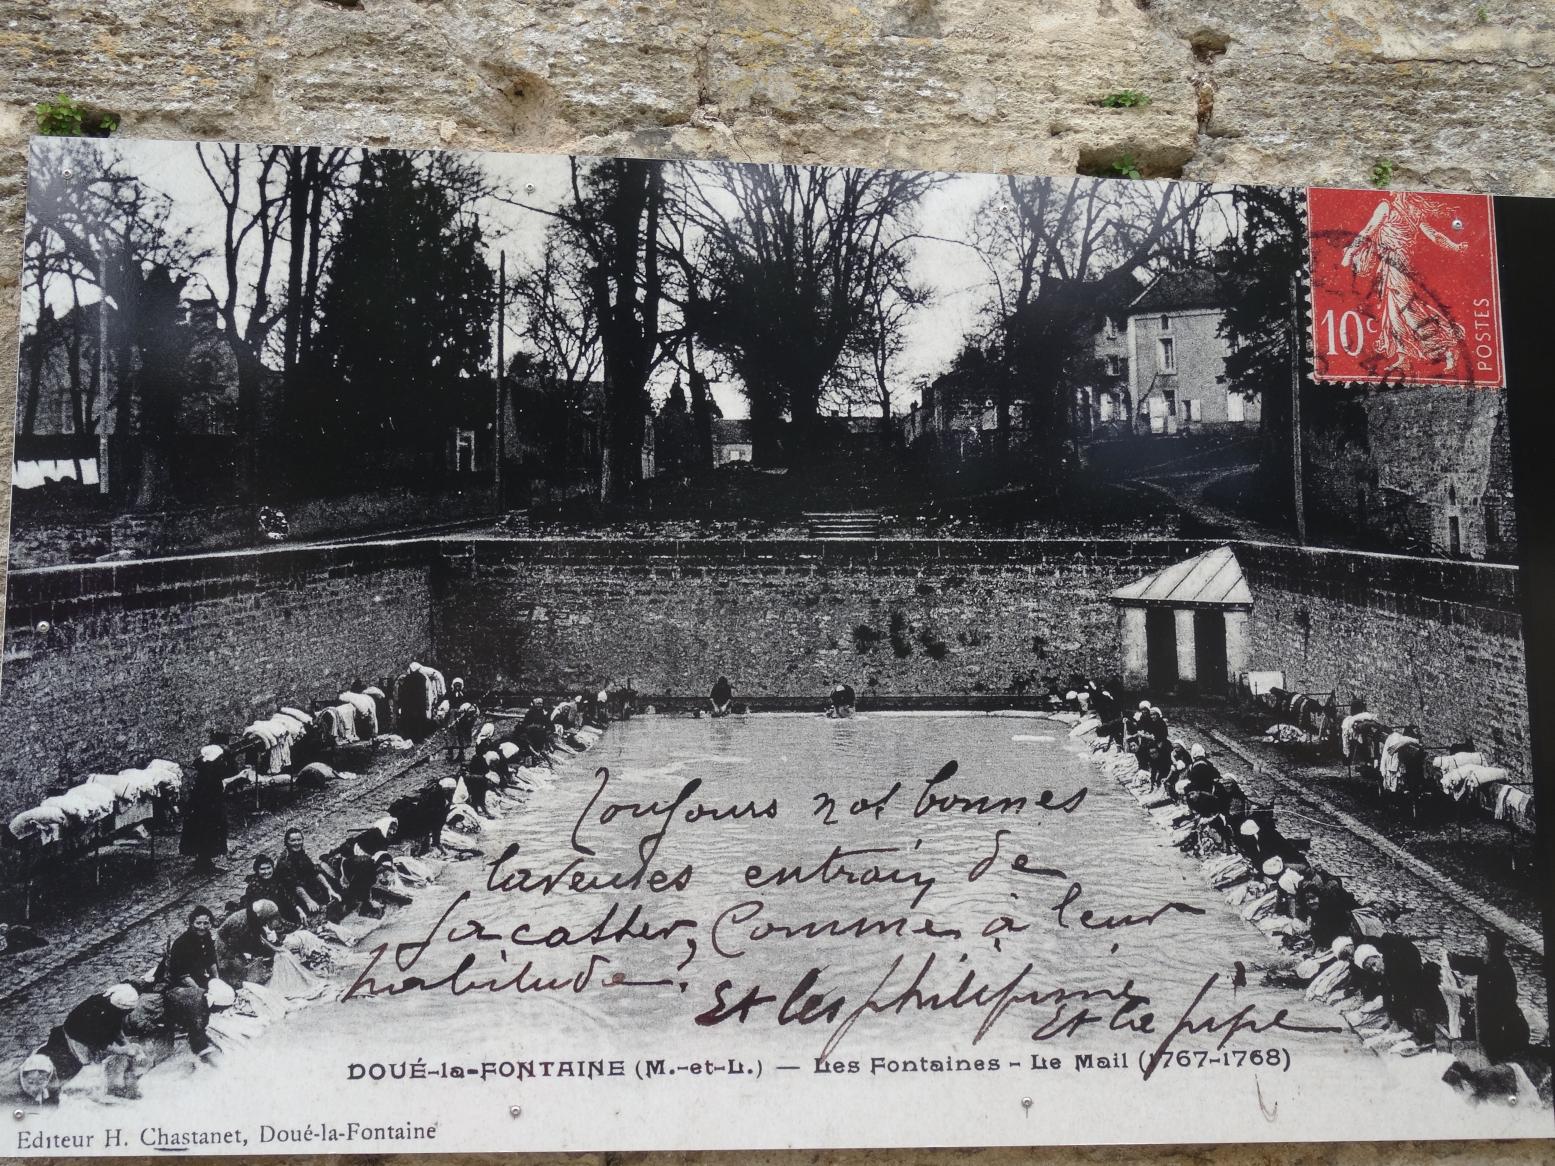 10c
POSTES
Toujours nos bonnes
laveuses entrain de
jacasser, Comme à leur
habitude.
Et les philipine
Et la pipe
DOUÉ-la-FONTAINE (M.-et-L.) — Les Fontaines - Le Mail (1767-1768)
Editeur H. Chastanet, Doué-la-Fontaine